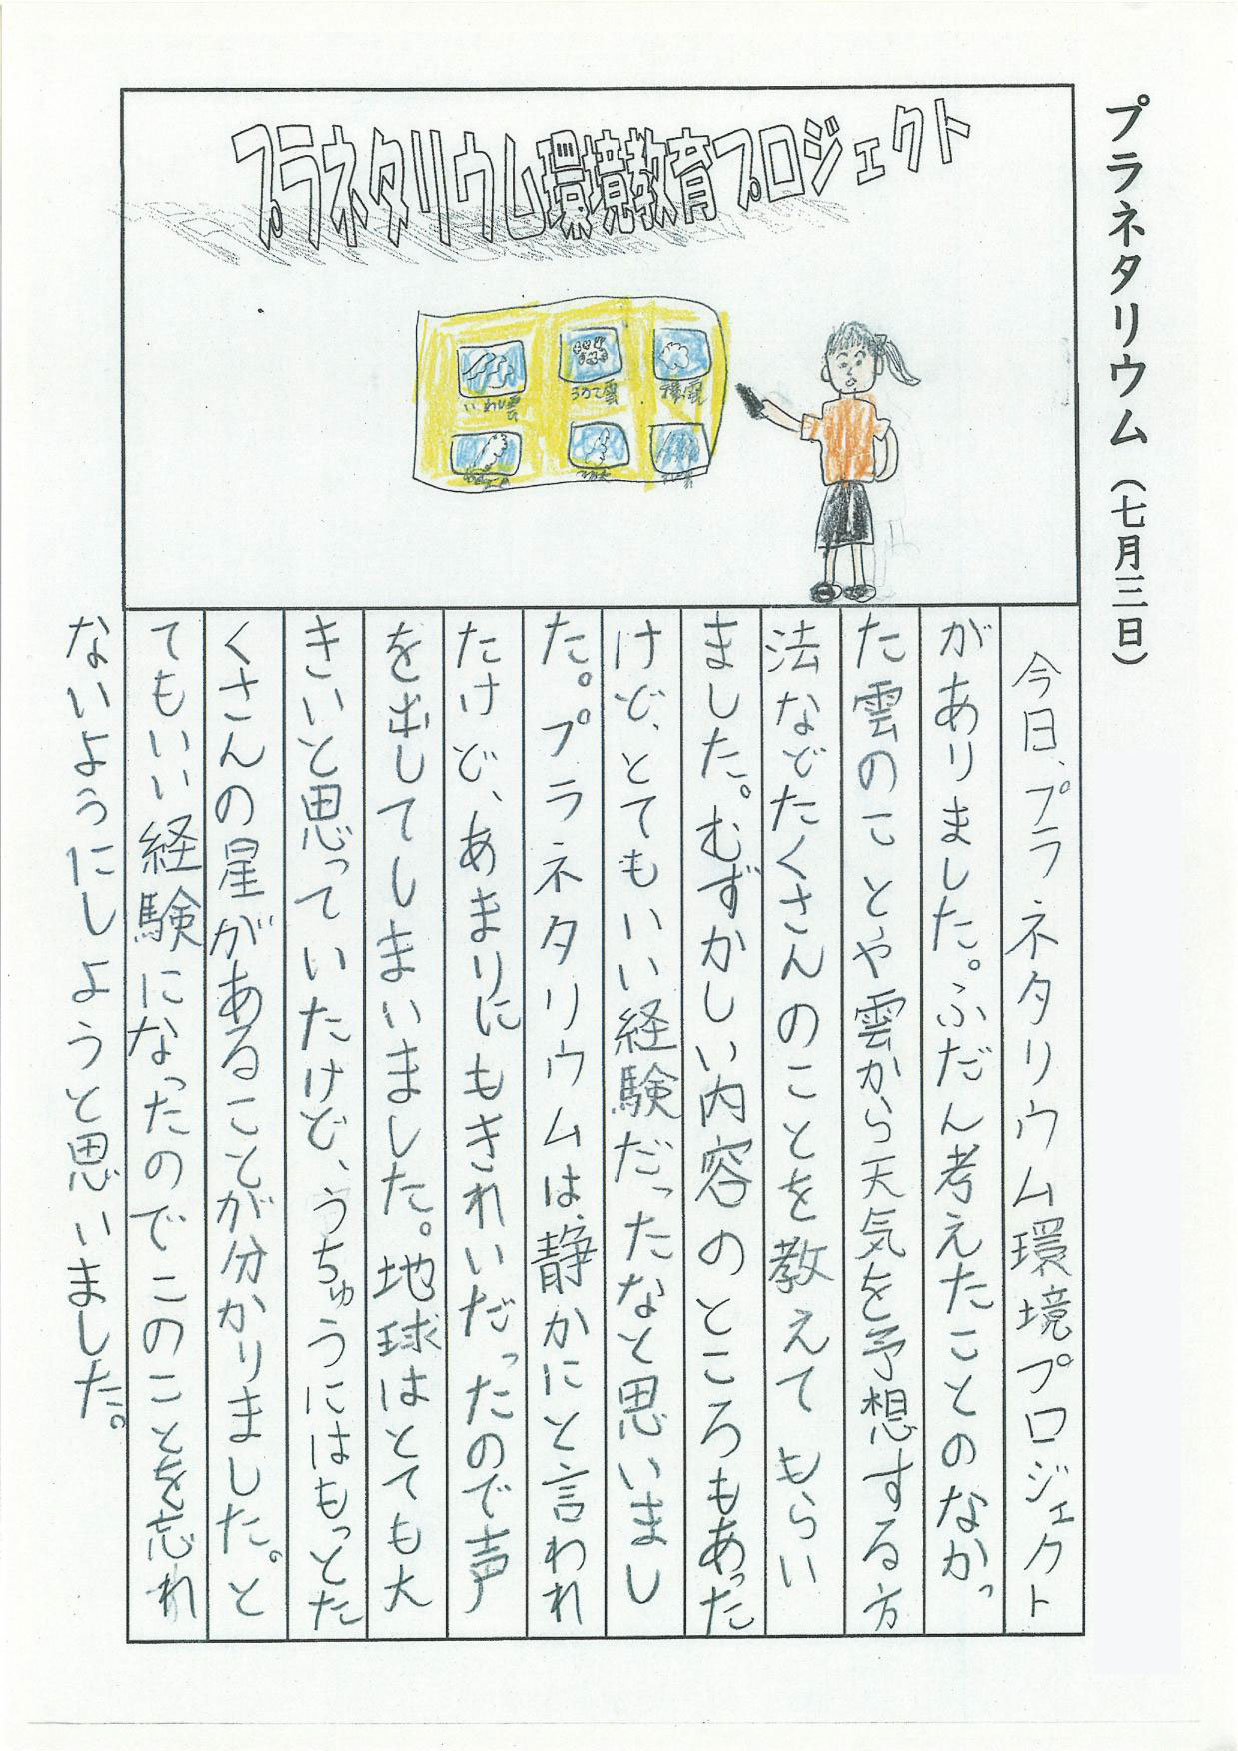 プラネタリウム（七月三日）
プラネタリウム環境教育プロジェクト
いわし雲
うろこ雲
今日、プラネタリウム環境プロジェクト
がありました。ふだん考えたことのなかっ
た雲のことや雲から天気を予想する方
法などたくさんのことを教えてもらい
ました。むずかしい内容のところもあった
けど、とてもいい経験だったなと思いまし
た。プラネタリウムは、静かにと言われ
たけど、あまりにもきれいだったので声
を出してしまいました。地球はとても大
きいと思っていたけど、うちゅうにはもっとた
くさんの星があることが分かりました。と
てもいい経験になったのでこのことを忘れ
ないようにしようと思いました。